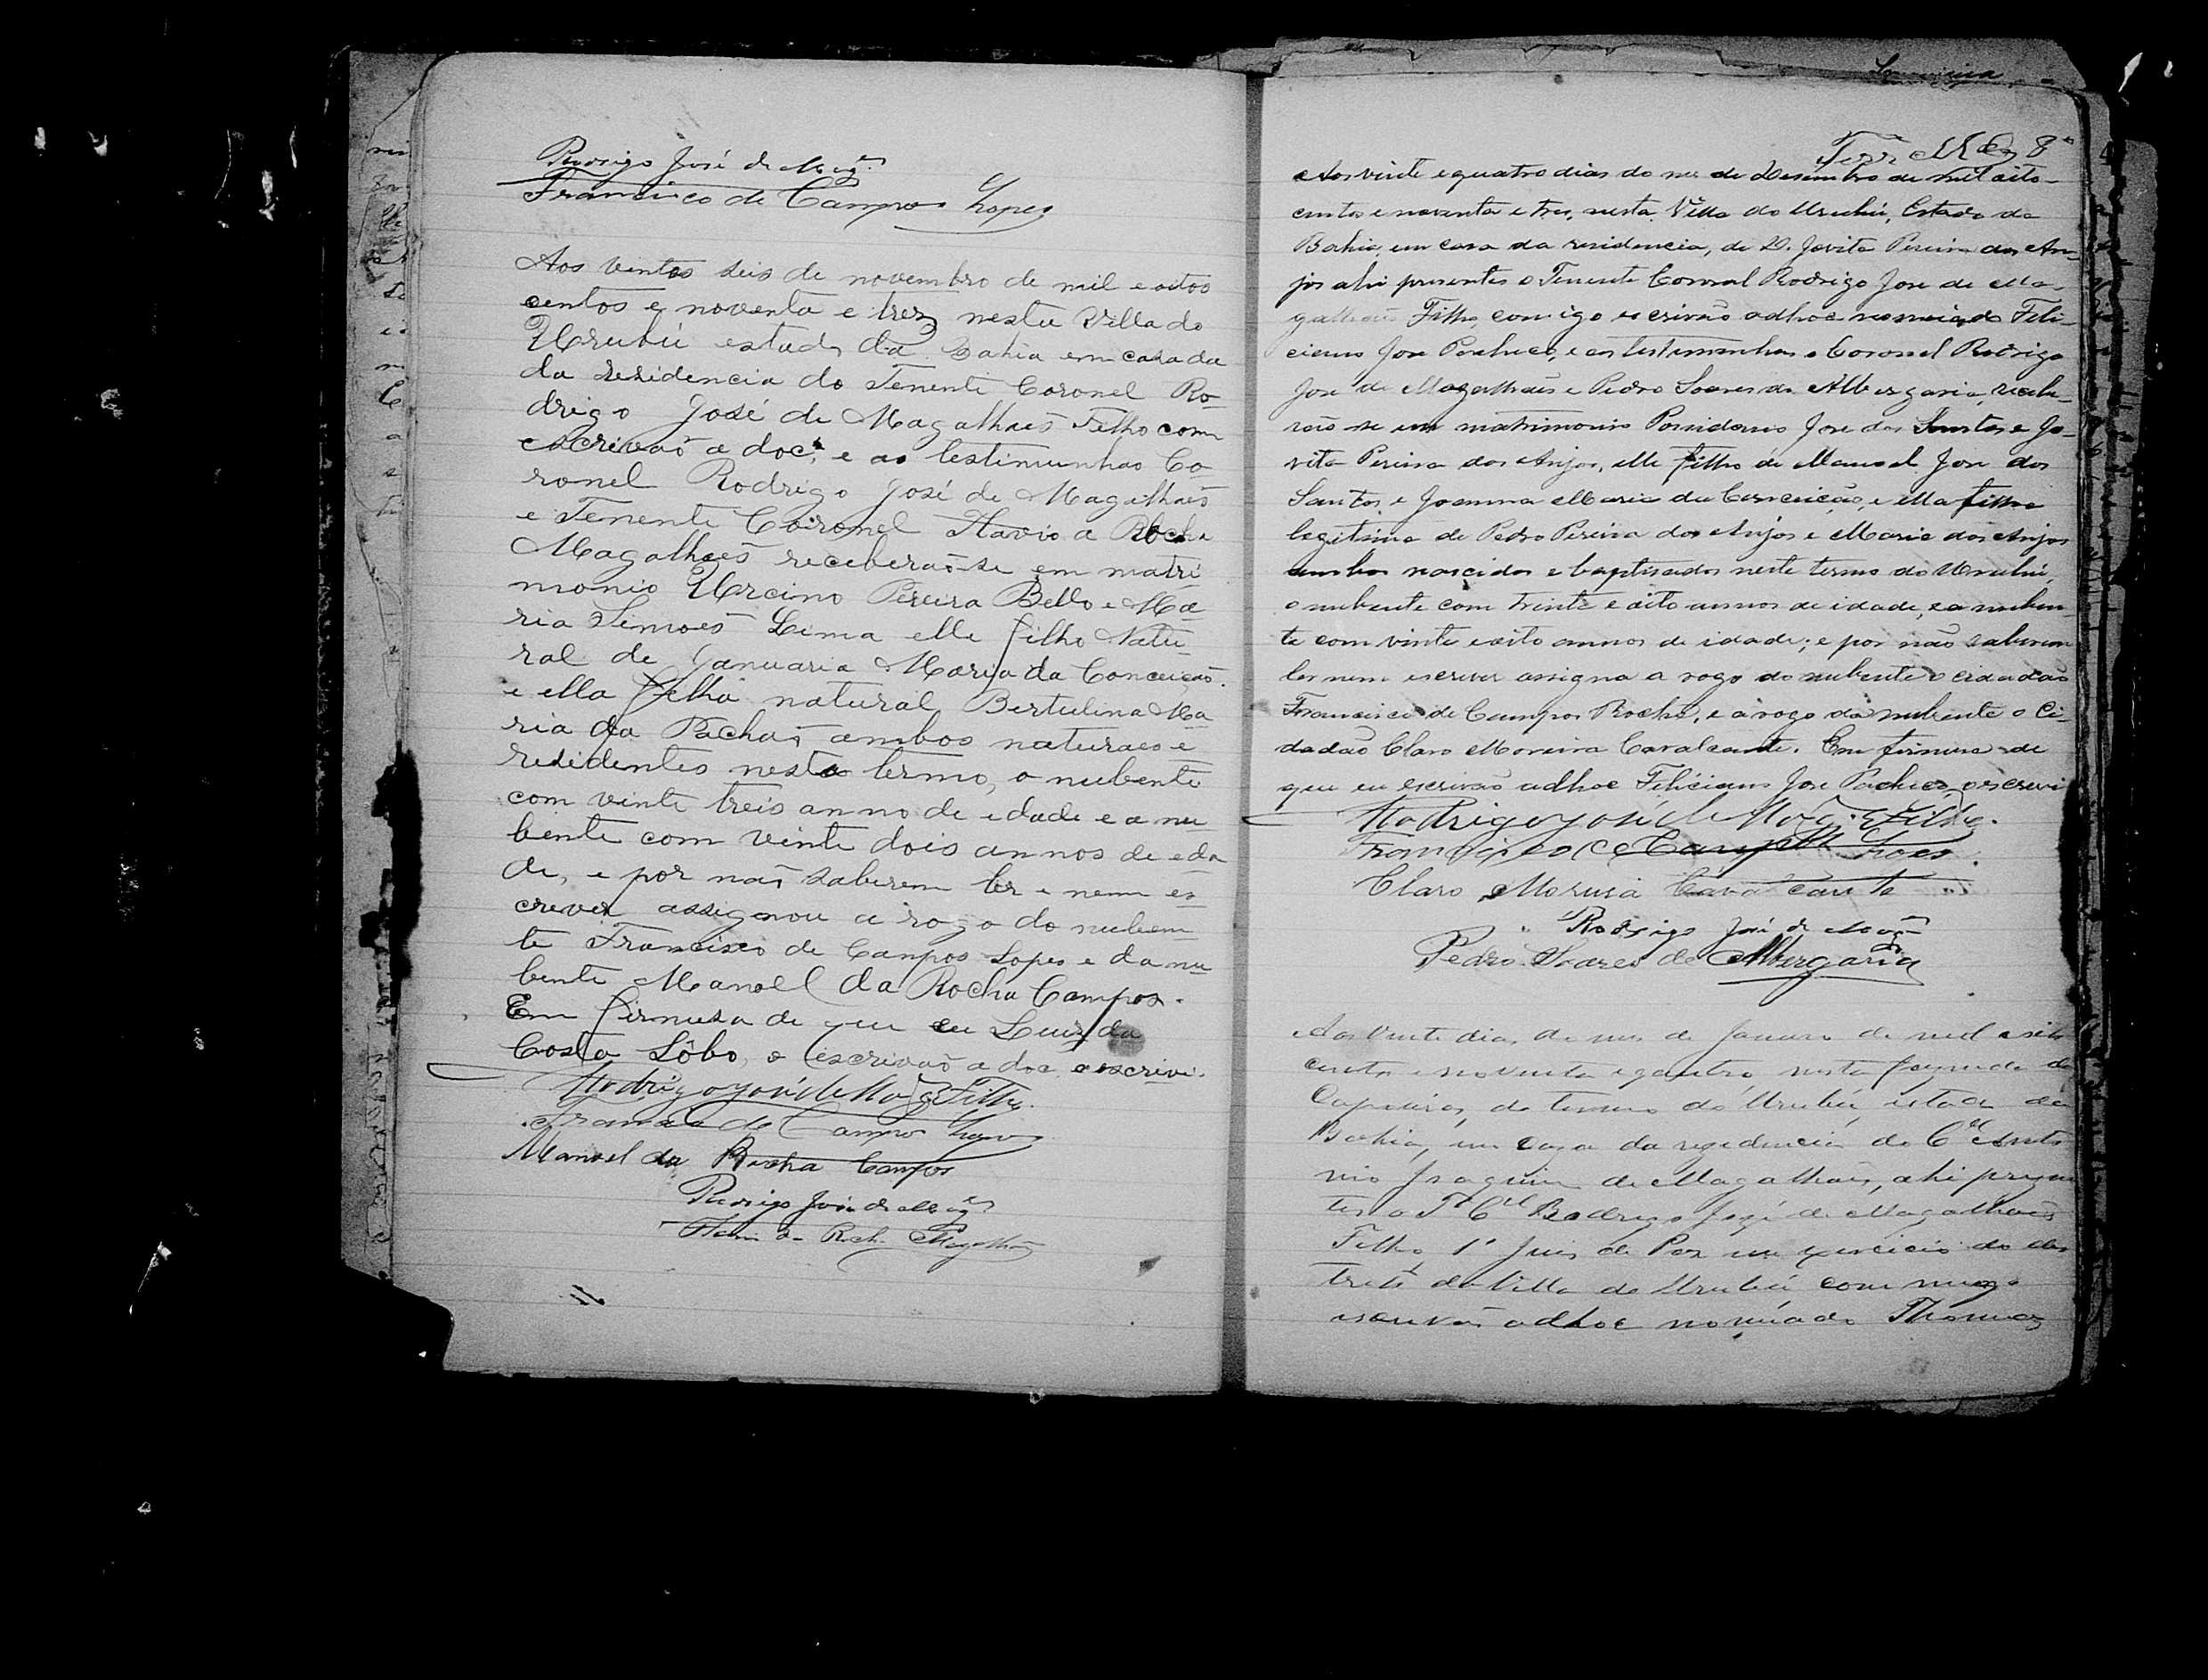 Rodrigo José de Mag.es
Francisco de Campos Lopes
Aos vintes seis de novembro de mil e oitos
centos e noventa e tres nesta Villa do
Urubú estado da Bahia em casa da
da residencia do Tenente Coronel Ro-
drigo José de Magalhães Filho com
escrivaõ a doc, e as testimunhas Co-
ronel Rodrigo José de Magalhães
e Tenente Coironel Flavio a Rocha
Magalhães receberaõ-se em matri-
monio Urcino Pereira Bello e Ma-
ria Simoes Lima elle filho Natu-
ral de Januaria Maria da Conceição
e ella filha natural Bertulina Ma-
ria da ambos naturaes e
residentes neste termo, o nubente
com vinte treis anno de edade e a nu-
bente com vinte dois annos de eda-
de, e por naõ saberem ler e nem es-
crever assignou a rogo do nuben-
te Francisco de Campos Lopes e da nu-
bente Manoel da Rocha Campos.
Em firmesa de que eu Luis da
Costa Lôbo, o escrivaõ a doc o escrivi.
Rodrigo José de Mag.es Filho.
Francisco de Campos Lopes
Manoel da Rocha Campos
Rodrigo José de Mag.es
Flavio da Rocha Magalhães
8
Aos vinte e quatro dias do mes de Desembro de mil oito-
centos e noventa e tres, nesta Villa do Urubú, Estado da
Bahia, em casa da residencia, de D. Jovita Pereira dos An-
jos ahi presentes o Tenente Coronel Rodrigo Jose de Ma-
galhães Filho, comigo escrivão adhoc nomeiado Feli-
ciano Jose Pacheco, e as testimunhas o Coronel Rodrigo
Jose de Magalhães e Pedro Soares de Albergaria, recebe-
rão-se em matrimonio Possidonio Jose dos Santos e Jo-
vita Pereira dos Anjos, elle filho de Manoel Jose dos
Santos, e Joanna Maria da Conceição, e ella filha
legitima de Pedro Pereira dos Anjos e Maria dos Anjos
ambos nascidos e baptisados neste termo do Urubú,
o nubente com trinta e oito annos de idade, e a nuben-
te com vinte e oito annos de idade; e por não saberem
ler nem escrever assigna a rogo do nubente o cidadão
Francisco de Campos Rocha, e a rogo da nubente o Ci-
dadão Claro Moreira Cavalcante. Em firmesa de
que eu escrivão adhoc Feliciano Jose Pacheco, o escrevi
Rodrigo José de Mag.es Filho.
Francisco de Campos Lopes.
Claro Moreira Cavalcante
Rodrigo José de Mag.es
Pedro Soares de Albergaria
Aos vinte dias do mes de Janeiro de mil e oito
centos e noventa e quatro nesta fazenda de
do termo do Urubú, estado da
Bahia, em caza da rezidencia do C.el Anto
nio Joaquim de Magalhães, ahi prezen
tes o T.e C.el Rodrigo José de Magalhães
Filho 1º Juis de Paz em exercicio do des
tricto da Villa do Urubú commigo
escrivão adhoc nomiado Thomas